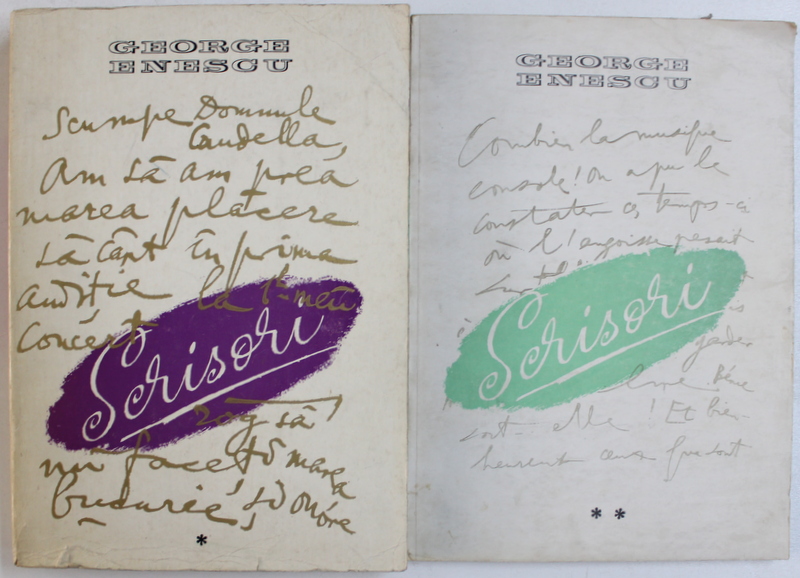 GEORGE
ENESCU
Scumpe Domnule
Caudella,
Am să am prea
marea plăcere
să cânt în prima
audiție la 1ul meu
Concert
Scrisori
rog să
mi faceți marea
bucurie, și onóre
*
GEORGE
ENESCU
Combien la musique
console! On a pu le
constater ces temps-ci
où l'angoisse pesait
sur
Scrisori
garder
Bénie
soit-elle! Et bien-
heureux ceux qui sont
**